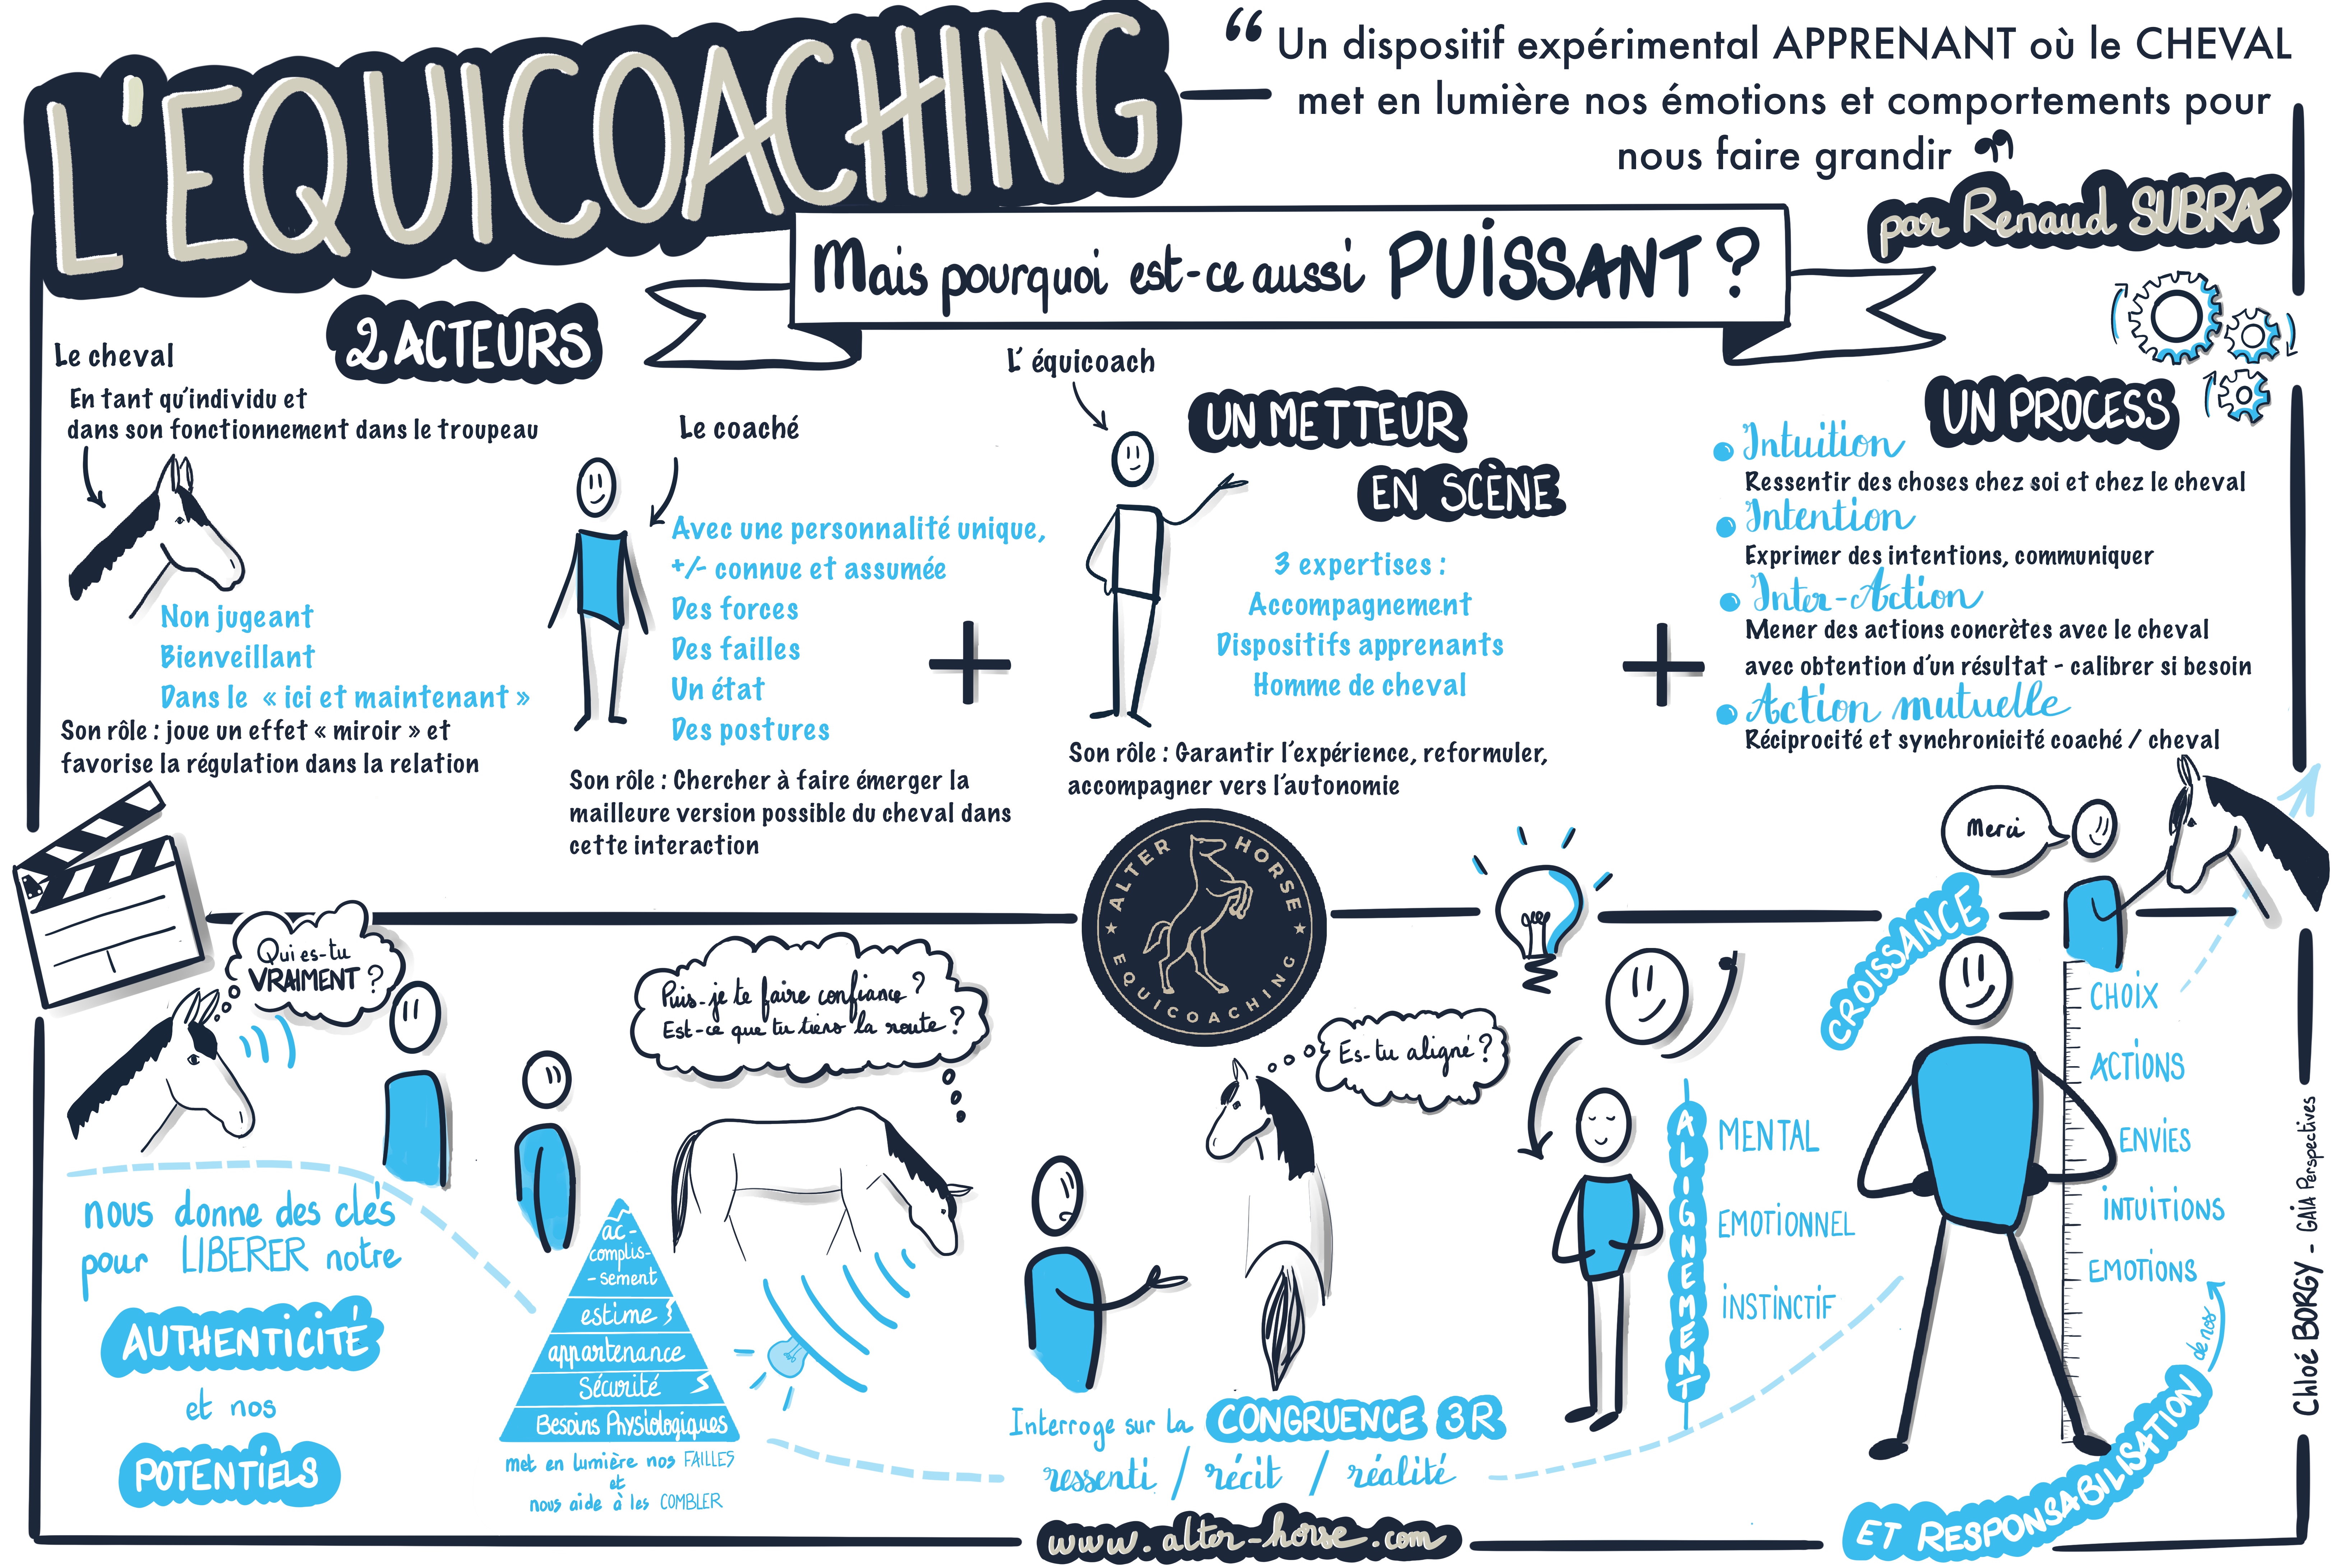 L'EQUICOACHING
“ Un dispositif expérimental APPRENANT où le CHEVAL
met en lumière nos émotions et comportements pour
nous faire grandir ”
par Renaud SUBRA
Mais pourquoi est-ce aussi PUISSANT ?
2 ACTEURS
Le cheval
En tant qu'individu et
dans son fonctionnement dans le troupeau
Non jugeant
Bienveillant
Dans le « ici et maintenant »
Son rôle : joue un effet « miroir » et
favorise la régulation dans la relation
Le coaché
Avec une personnalité unique,
+/- connue et assumée
Des forces
Des failles
Un état
Des postures
Son rôle : Chercher à faire émerger la
mailleure version possible du cheval dans
cette interaction
+
L' équicoach
UN METTEUR
EN SCÈNE
3 expertises :
Accompagnement
Dispositifs apprenants
Homme de cheval
Son rôle : Garantir l'expérience, reformuler,
accompagner vers l'autonomie
+
UN PROCESS
Intuition
Ressentir des choses chez soi et chez le cheval
Intention
Exprimer des intentions, communiquer
Inter-Action
Mener des actions concrètes avec le cheval
avec obtention d'un résultat - calibrer si besoin
Action mutuelle
Réciprocité et synchronicité coaché / cheval
ALTER HORSE
EQUICOACHING
Qui es-tu
VRAIMENT ?
nous donne des clés
pour LIBERER notre
AUTHENTICITÉ
et nos
POTENTIELS
Puis-je te faire confiance ?
Est-ce que tu tiens la route ?
ac-
complis-
-sement
estime
appartenance
Sécurité
Besoins Physiologiques
met en lumière nos FAILLES
et
nous aide à les COMBLER
Es-tu aligné ?
Interroge sur la CONGRUENCE 3R
ressenti / récit / réalité
ALIGNEMENT
MENTAL
EMOTIONNEL
INSTINCTIF
Merci
CROISSANCE
CHOIX
ACTIONS
ENVIES
INTUITIONS
EMOTIONS
de nos
ET RESPONSABILISATION
www.alter-horse.com
Chloé BORGY - GAIA Perspectives